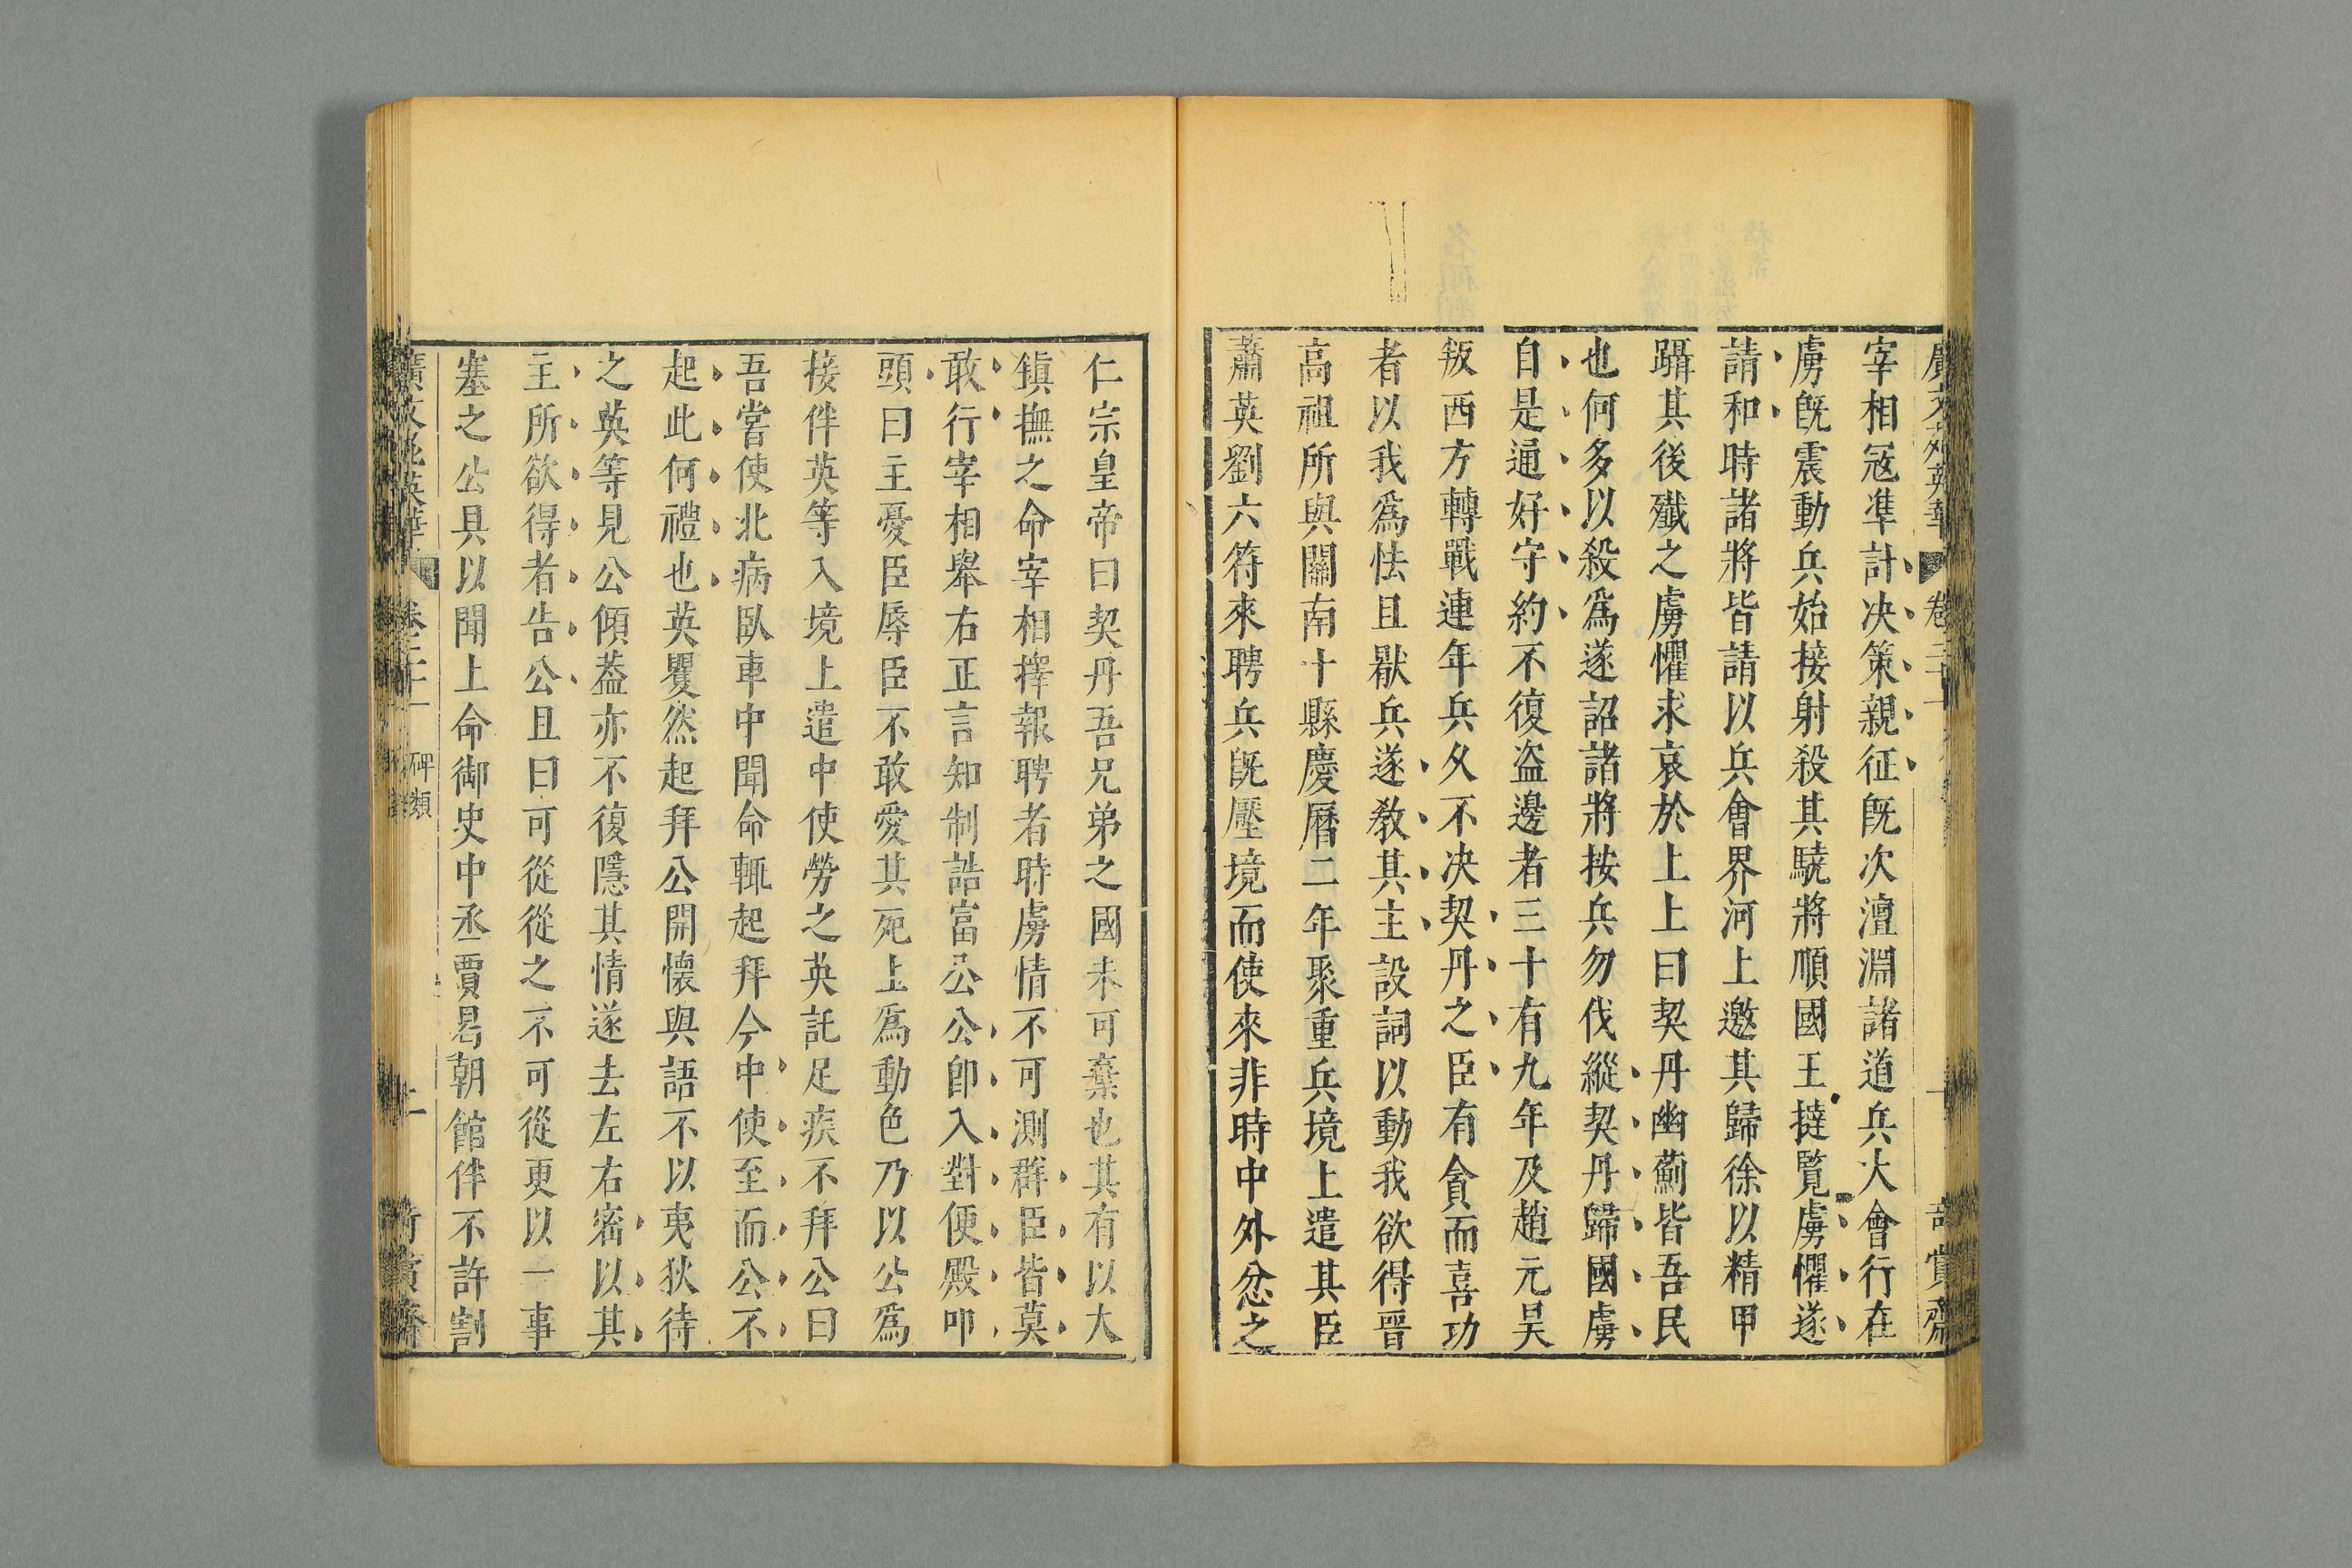 宰相冦凖計决策親征旣次澶淵諸道兵大會行在
虜旣震動兵始接射殺其驍將順國王撻覽虜懼遂
請和時諸將皆請以兵會界河上邀其歸徐以精甲
躡其後殲之虜懼求哀於上上曰契丹幽薊皆吾民
也何多以殺爲遂詔諸將按兵勿伐縱契丹歸國虜
自是通好守約不復盗邊者三十有九年及趙元昊
叛西方轉戰連年兵夂不决契丹之臣有貪而喜功
者以我爲怯且厭兵遂敎其主設詞以動我欲得晉
高祖所與關南十縣慶曆二年聚重兵境上遣其臣
蕭英劉六符來聘兵旣壓境而使來非時中外忿之
仁宗皇帝曰契丹吾兄弟之國未可棄也其有以大
鎮撫之命宰相擇報聘者時虜情不可測群臣皆莫
敢行宰相舉右正言知制誥富公公卽入對便殿叩
頭曰主憂臣辱臣不敢愛其死上爲動色乃以公爲
接伴英等入境上遣中使勞之英託足疾不拜公曰
吾嘗使北病臥車中聞命輒起拜今中使至而公不
起此何禮也英矍然起拜公開懷與語不以夷狄待
之英等見公傾葢亦不復隱其情遂去左右宻以其
主所欲得者告公且曰可從從之不可從更以一事
塞之公具以聞上命御史中丞賈昌朝館伴不許割
碑類